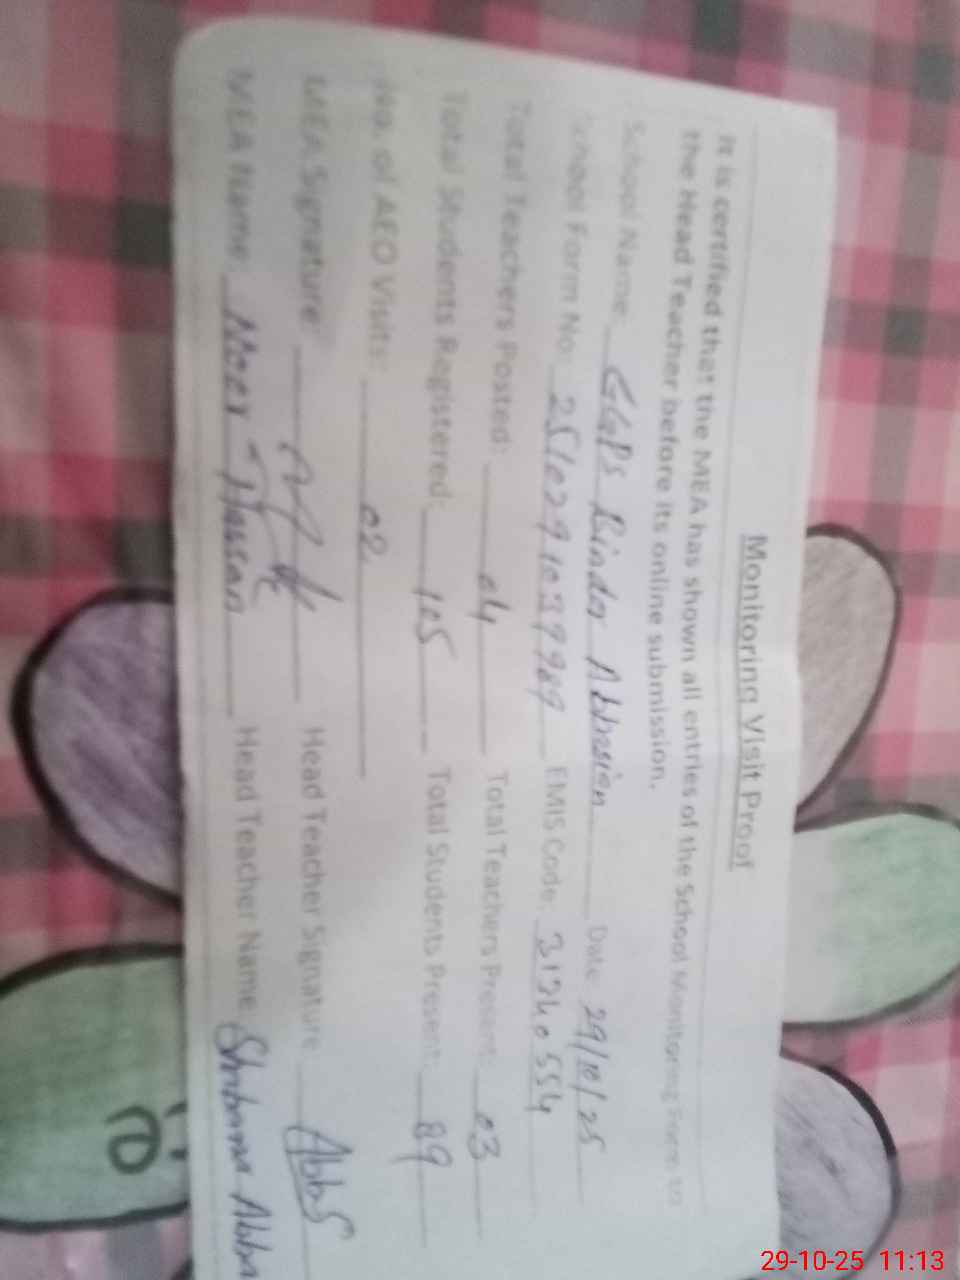 Monitoring Visit Proof
It is certified that the MEA has shown all entries of the School Monitoring Form to
the Head Teacher before its online submission.
School Name: GGPS Rindan Abbasian Date: 29/10/25
School Form No: 2510291039989 EMIS Code: 31340554
Total Teachers Posted: 04 Total Teachers Present: 03
Total Students Registered: 105 Total Students Present: 89
No. of AEO Visits: 02
MEA Signature: Head Teacher Signature: Abbs
MEA Name: Hassan Head Teacher Name: Shabana
29-10-25 11:13